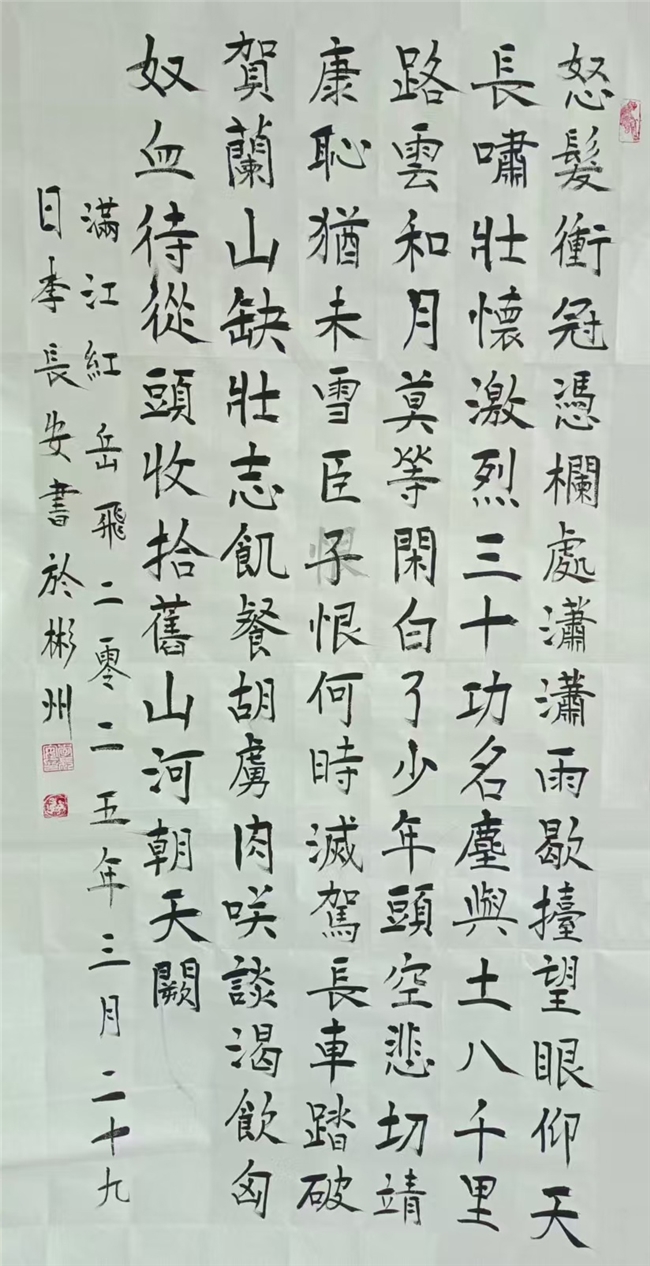 怒髮衝冠憑欄處瀟瀟雨歇擡望眼仰天
長嘯壯懷激烈三十功名塵與土八千里
路雲和月莫等閑白了少年頭空悲切靖
康恥猶未雪臣子恨何時滅駕長車踏破
賀蘭山缺壯志飢餐胡虜肉咲談渴飲匈
奴血待從頭收拾舊山河朝天闕
滿江紅岳飛二零二五年三月二十九
日李長安書於彬州